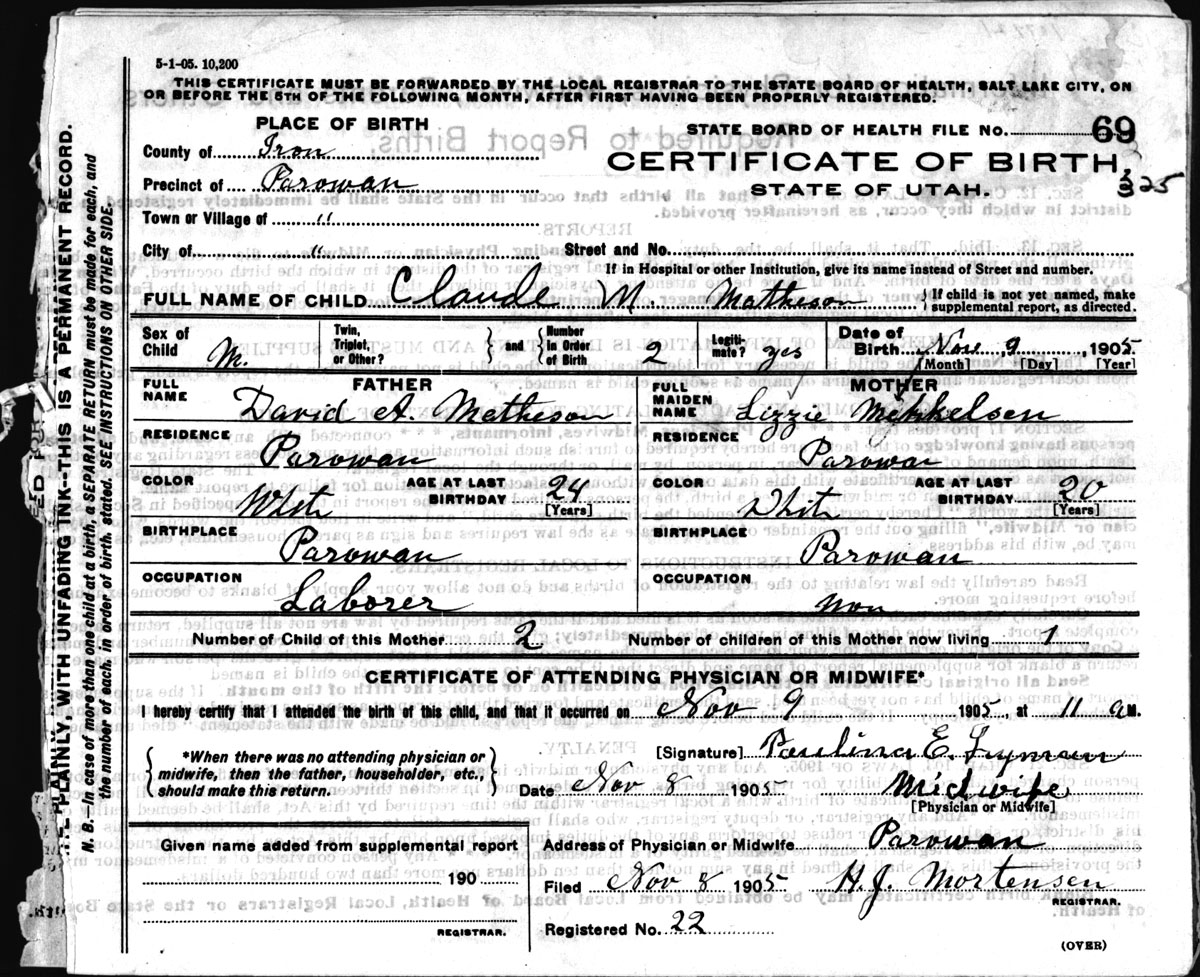 5-1-05. 10,200
THIS CERTIFICATE MUST BE FORWARDED BY THE LOCAL REGISTRAR TO THE STATE BOARD OF HEALTH, SALT LAKE CITY, ON
OR BEFORE THE 5TH OF THE FOLLOWING MONTH, AFTER FIRST HAVING BEEN PROPERLY REGISTERED.
PLACE OF BIRTH
County of Iron
Precinct of Parowan
Town or Village of "
City of "
STATE BOARD OF HEALTH FILE No. 69
CERTIFICATE OF BIRTH,
STATE OF UTAH.
325
Street and No.
If in Hospital or other Institution, give its name instead of Street and number.
FULL NAME OF CHILD Claude M. Matheson
If child is not yet named, make
supplemental report, as directed.
Sex of Child M.
Twin, Triplet, or Other?
and
Number in Order of Birth 2
Legitimate? yes
Date of Birth Nov 9, 1905
[Month] [Day] [Year]
FATHER
FULL NAME David A. Matheson
RESIDENCE Parowan
COLOR White
AGE AT LAST BIRTHDAY 24
[Years]
BIRTHPLACE Parowan
OCCUPATION Laborer
MOTHER
FULL MAIDEN NAME Lizzie Mikkelsen
RESIDENCE Parowan
COLOR White
AGE AT LAST BIRTHDAY 20
[Years]
BIRTHPLACE Parowan
OCCUPATION Non
Number of Child of this Mother 2
Number of children of this Mother now living 1
CERTIFICATE OF ATTENDING PHYSICIAN OR MIDWIFE*
I hereby certify that I attended the birth of this child, and that it occurred on Nov 9 1905, at 11 a M.
*When there was no attending physician or
midwife, then the father, householder, etc.,
should make this return.
[Signature] Paulina E. Lyman
Date Nov 8 1905
Midwife
[Physician or Midwife]
Given name added from supplemental report
190
REGISTRAR.
Address of Physician or Midwife Parowan
Filed Nov 8 1905 H. J. Mortensen
REGISTRAR.
Registered No. 22
(OVER)
PLAINLY, WITH UNFADING INK--THIS IS A PERMANENT RECORD.
N. B.—In case of more than one child at a birth, a SEPARATE RETURN must be made for each, and
the number of each, in order of birth, stated. SEE INSTRUCTIONS ON OTHER SIDE.